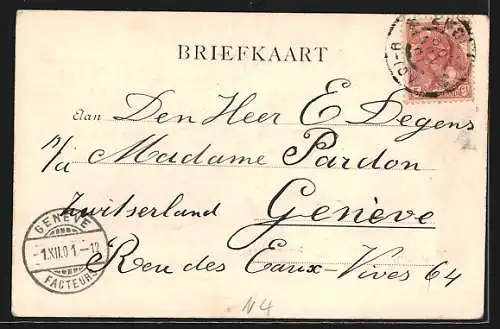 BRIEFKAART
Aan Den Heer E Degens
p/a Madame Pardon
Zwitserland Genève
Reu des Eaux-Vives 64
GENÈVE
1.XII.01.–12
FACTEURS